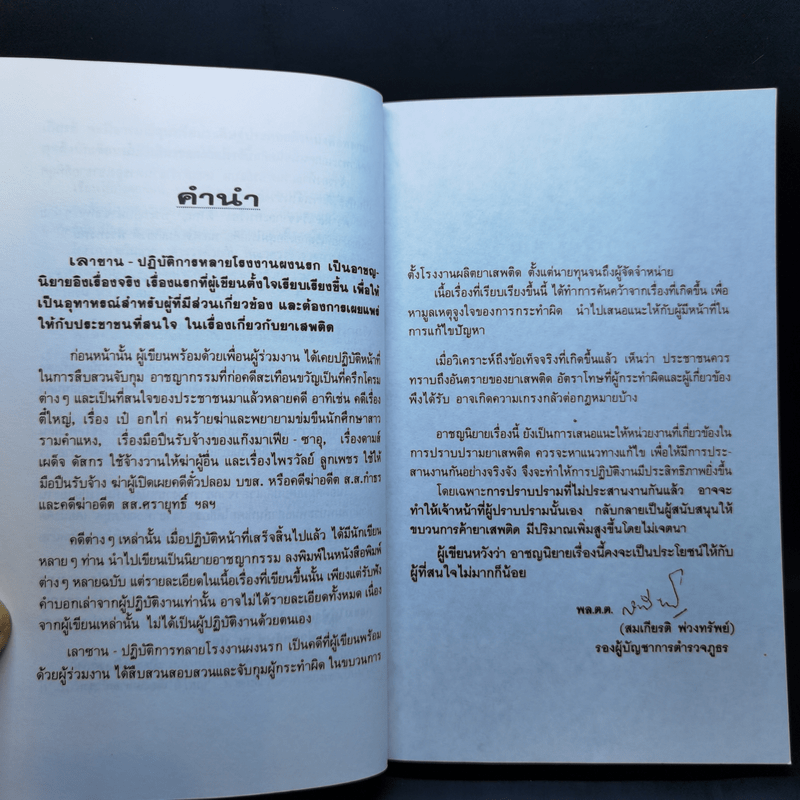 คำนำ
เลาซาน - ปฏิบัติการทลายโรงงานผงนรก เป็นอาชญ-
นิยายอิงเรื่องจริง เรื่องแรกที่ผู้เขียนตั้งใจเรียบเรียงขึ้น เพื่อให้
เป็นอุทาหรณ์สำหรับผู้ที่มีส่วนเกี่ยวข้อง และต้องการเผยแพร่
ให้กับประชาชนที่สนใจ ในเรื่องเกี่ยวกับยาเสพติด
ก่อนหน้านั้น ผู้เขียนพร้อมด้วยเพื่อนผู้ร่วมงาน ได้เคยปฏิบัติหน้าที่
ในการสืบสวนจับกุม อาชญากรรมที่ก่อคดีสะเทือนขวัญเป็นที่ครึกโครม
ต่างๆ และเป็นที่สนใจของประชาชนมาแล้วหลายคดี อาทิเช่น คดีเรื่อง
ตี๋ใหญ่, เรื่อง เป๋ อกไก่ คนร้ายฆ่าและพยายามข่มขืนนักศึกษาสาว
รามคำแหง, เรื่องมือปืนรับจ้างของแก๊งมาเฟีย - ซาอุ, เรื่องดามส์
เผด็จ ดัสกร ใช้จ้างวานให้ฆ่าผู้อื่น และเรื่องไพรวัลย์ ลูกเพชร ใช้ให้
มือปืนรับจ้าง ฆ่าผู้เปิดเผยคดีตั๋วปลอม บขส. หรือคดีฆ่าอดีต ส.ส.กำธร
และคดีฆ่าอดีต สส.ศรายุทธ์ ฯลฯ
คดีต่างๆ เหล่านั้น เมื่อปฏิบัติหน้าที่เสร็จสิ้นไปแล้ว ได้มีนักเขียน
หลายๆ ท่าน นำไปเขียนเป็นนิยายอาชญากรรม ลงพิมพ์ในหนังสือพิมพ์
ต่างๆ หลายฉบับ แต่รายละเอียดในเนื้อเรื่องที่เขียนขึ้นนั้น เพียงแต่รับฟัง
คำบอกเล่าจากผู้ปฏิบัติงานเท่านั้น อาจไม่ได้รายละเอียดทั้งหมด เนื่อง
จากผู้เขียนเหล่านั้น ไม่ได้เป็นผู้ปฏิบัติงานด้วยตนเอง
เลาซาน - ปฏิบัติการทลายโรงงานผงนรก เป็นคดีที่ผู้เขียนพร้อม
ด้วยผู้ร่วมงาน ได้สืบสวนสอบสวนและจับกุมผู้กระทำผิด ในขบวนการ
ตั้งโรงงานผลิตยาเสพติด ตั้งแต่นายทุนจนถึงผู้จัดจำหน่าย
เนื้อเรื่องที่เรียบเรียงขึ้นนี้ ได้ทำการค้นคว้าจากเรื่องที่เกิดขึ้น เพื่อ
หามูลเหตุจูงใจของการกระทำผิด นำไปเสนอแนะให้กับผู้มีหน้าที่ใน
การแก้ไขปัญหา
เมื่อวิเคราะห์ถึงข้อเท็จจริงที่เกิดขึ้นแล้ว เห็นว่า ประชาชนควร
ทราบถึงอันตรายของยาเสพติด อัตราโทษที่ผู้กระทำผิดและผู้เกี่ยวข้อง
พึงได้รับ อาจเกิดความเกรงกลัวต่อกฎหมายบ้าง
อาชญนิยายเรื่องนี้ ยังเป็นการเสนอแนะให้หน่วยงานที่เกี่ยวข้องใน
การปราบปรามยาเสพติด ควรจะหาแนวทางแก้ไข เพื่อให้มีการประ-
สานงานกันอย่างจริงจัง จึงจะทำให้การปฏิบัติงานมีประสิทธิภาพยิ่งขึ้น
โดยเฉพาะการปราบปรามที่ไม่ประสานงานกันแล้ว อาจจะ
ทำให้เจ้าหน้าที่ผู้ปราบปรามนั้นเอง กลับกลายเป็นผู้สนับสนุนให้
ขบวนการค้ายาเสพติด มีปริมาณเพิ่มสูงขึ้นโดยไม่เจตนา
ผู้เขียนหวังว่า อาชญนิยายเรื่องนี้คงจะเป็นประโยชน์ให้กับ
ผู้ที่สนใจไม่มากก็น้อย
พล.ต.ต.
(สมเกียรติ พ่วงทรัพย์)
รองผู้บัญชาการตำรวจภูธร